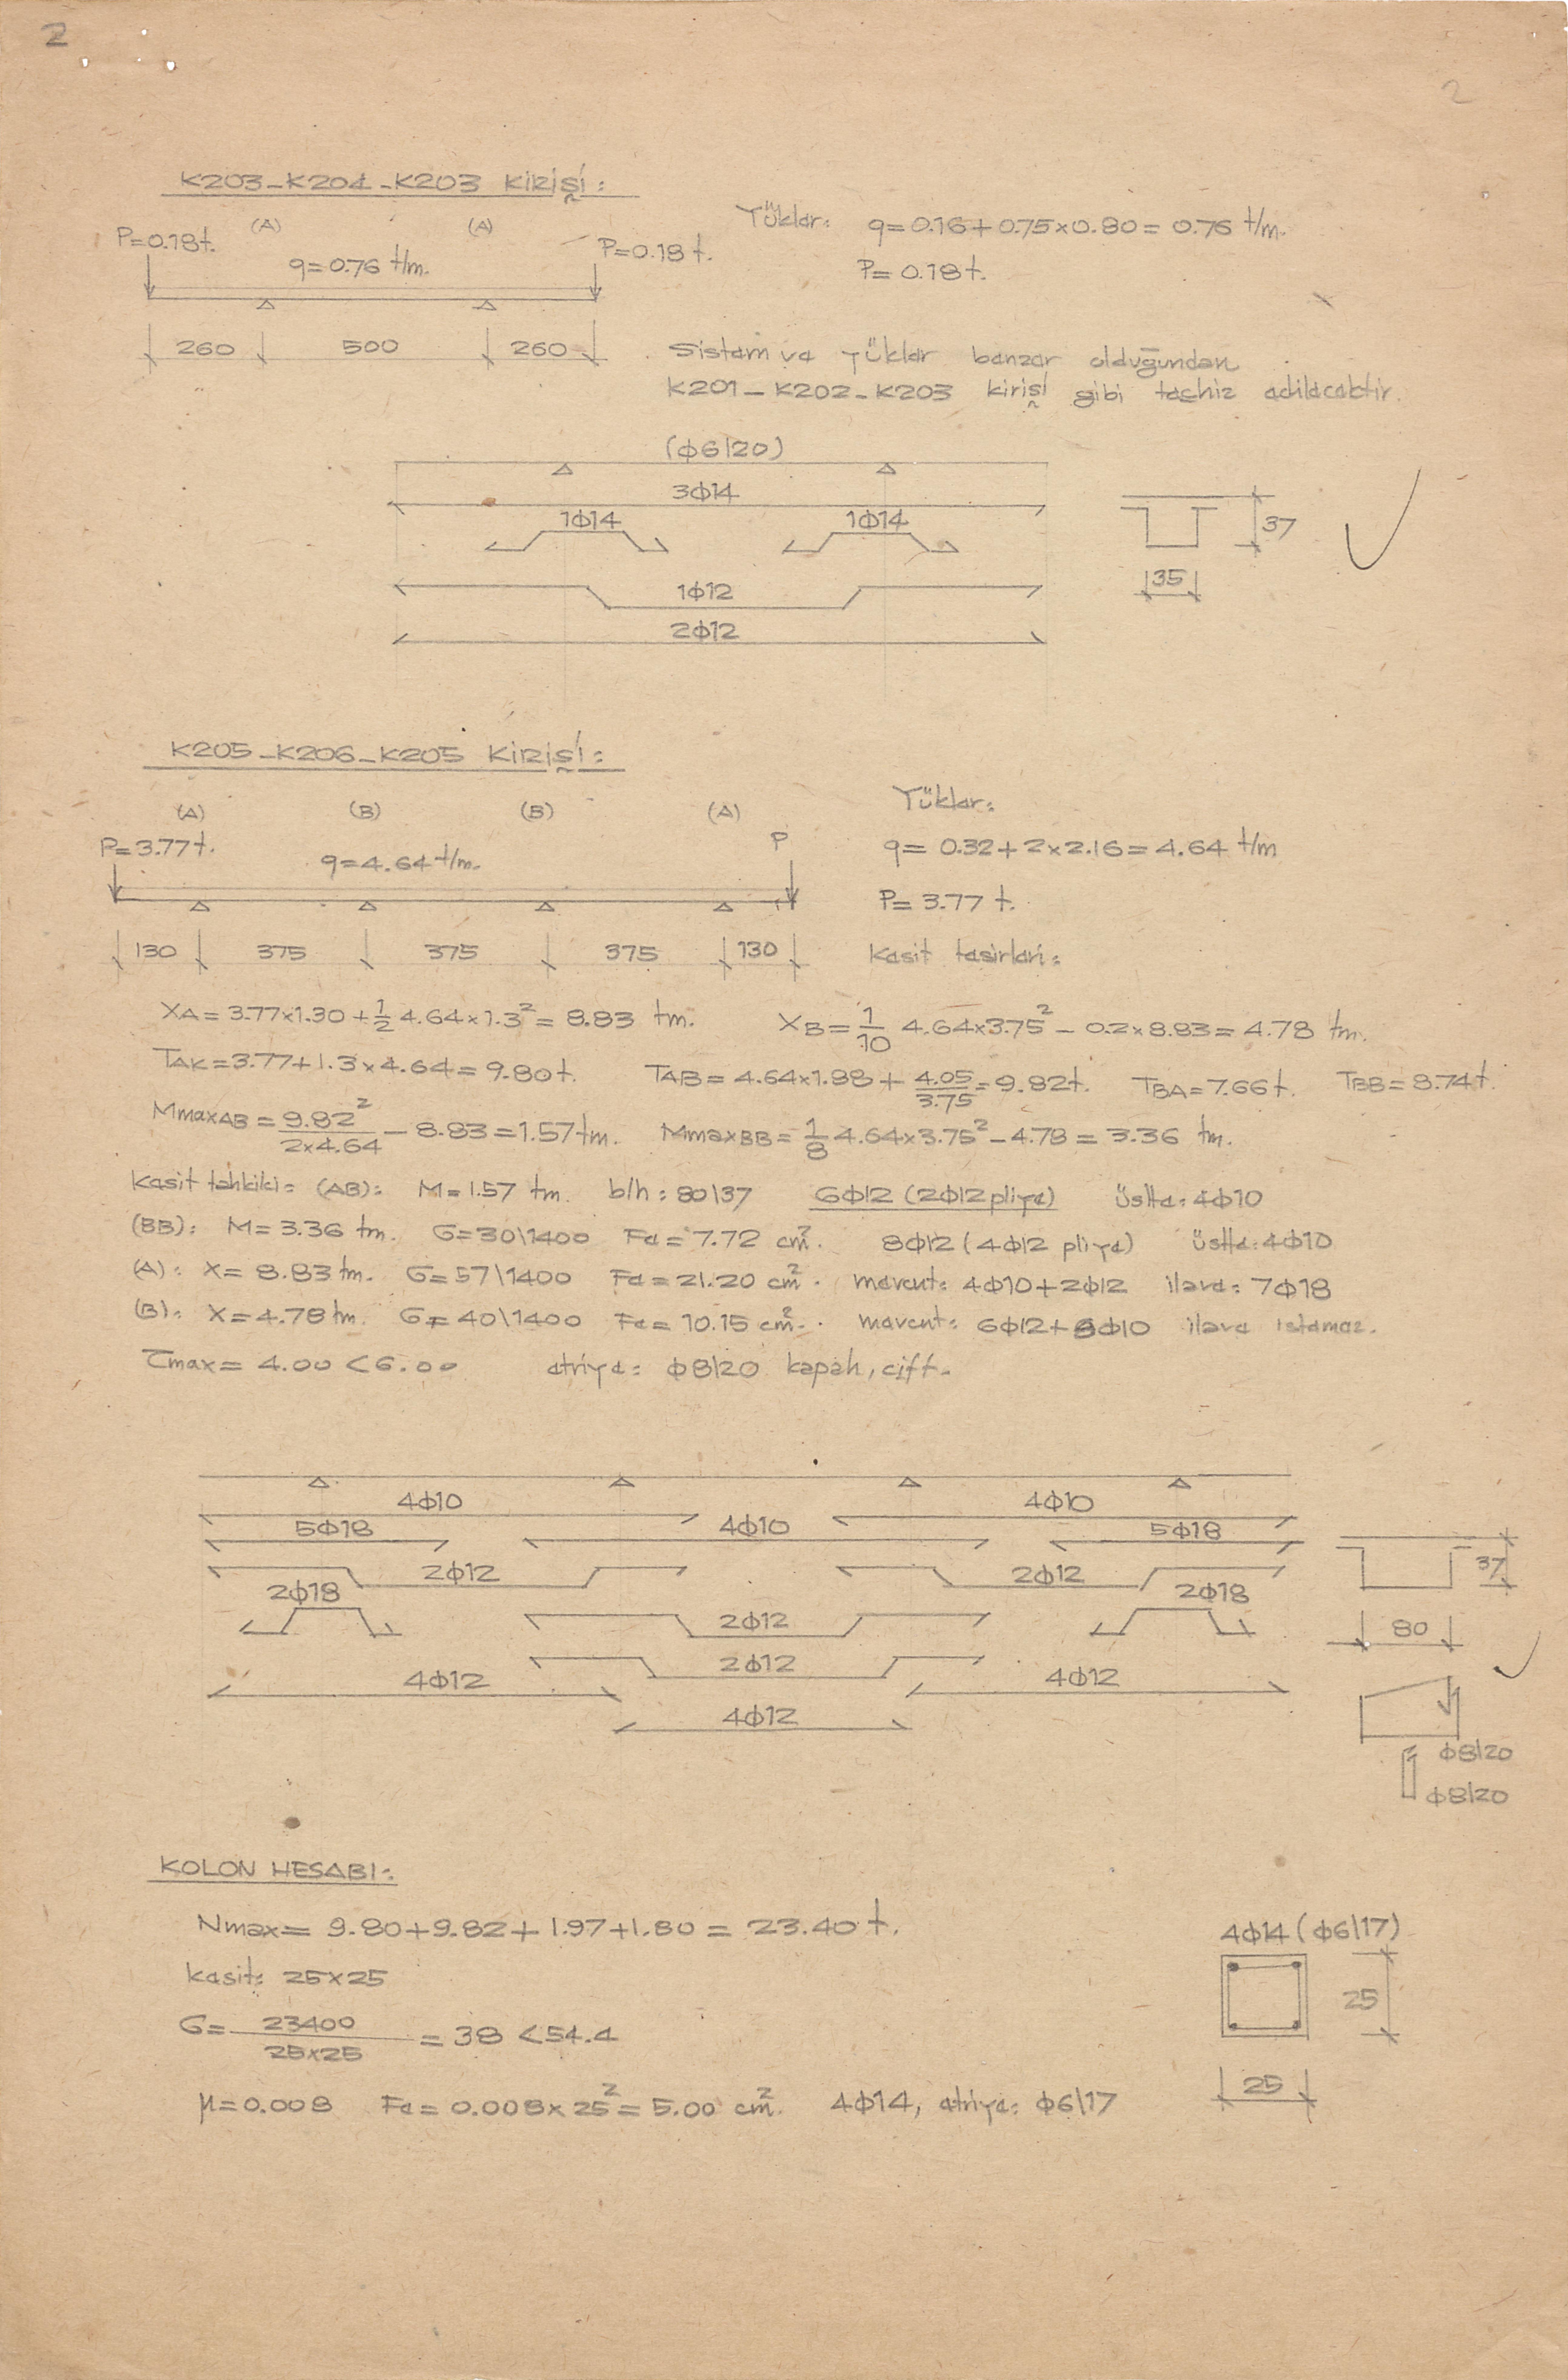 2
2
K203-K204-K203 KİRİŞİ:
(A) (A)
P=0.18t. q=0.76 t/m. P=0.18 t.
Yükler: q=0.16+0.75x0.80=0.76 t/m.
P=0.18t.
260 500 260
Sistem ve yükler benzer olduğundan
K201-K202-K203 kirişi gibi teçhiz edilecektir.
(Φ6\20)
3Φ14
1Φ14 1Φ14
1Φ12
2Φ12
37
35
K205-K206-K205 KİRİŞİ:
(A) (B) (B) (A)
P=3.77t. q=4.64 t/m. P
Yükler:
q= 0.32+2x2.16=4.64 t/m
P= 3.77 t.
130 375 375 375 130
Kesit tesirleri:
XA=3.77x1.30+1/2 4.64x1.3²=8.83 tm. XB=1/10 4.64x3.75²-0.2x8.83=4.78 tm.
TAK=3.77+1.3x4.64=9.80t. TAB=4.64x1.88+4.05/3.75=9.82t. TBA=7.66t. TBB=8.74t.
MmaxAB=9.82²/2x4.64-8.83=1.57tm. MmaxBB=1/8 4.64x3.75²-4.78=3.36 tm.
Kesit tahkiki: (AB): M=1.57 tm. b/h: 80\37 6Φ12 (2Φ12 pliye) Üstte: 4Φ10
(BB): M=3.36 tm. G=30\1400 Fe=7.72 cm². 8Φ12 (4Φ12 pliye) üstte: 4Φ10
(A): X=8.83 tm. G=57\1400 Fe=21.20 cm². mevcut: 4Φ10+2Φ12 ilave: 7Φ18
(B): X=4.78 tm. G=40\1400 Fe=10.15 cm². mevcut: 6Φ12+8Φ10 ilave istemez.
τmax=4.00<6.00 etriye: Φ8\20 kapalı, çift.
4Φ10 4Φ10
5Φ18 4Φ10 5Φ18
2Φ12 2Φ12
2Φ18 2Φ18
2Φ12
2Φ12
4Φ12 4Φ12
4Φ12
37
80
Φ8\20
Φ8\20
KOLON HESABI:
Nmax= 9.80+9.82+1.97+1.80=23.40 t.
Kesit: 25x25
G=23400/25x25=38<54.4
μ=0.008 Fe=0.008x25²=5.00 cm². 4Φ14, etriye: Φ6\17
4Φ14 (Φ6\17)
25
25